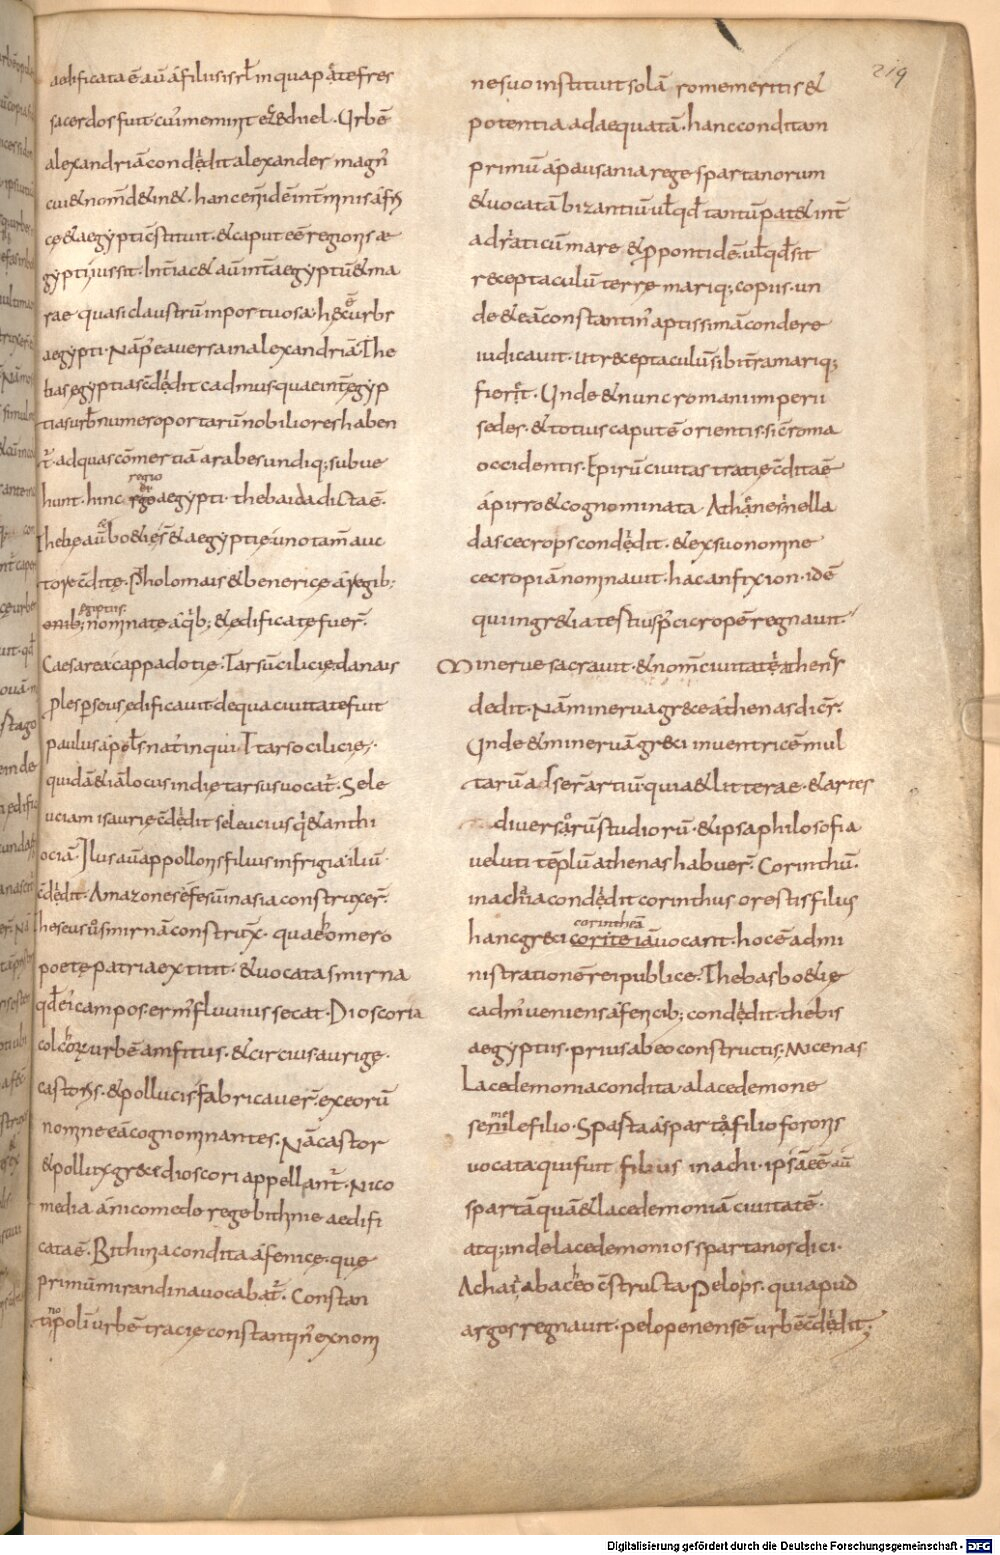 aedificata ē aū á filiis isrł in qua pr̄ áte fres
sacerdos fuit cuiꝰ meminit ezechiel · Urbē
alexandriā condedit alexander magnꝰ
cui & nom̄ d& in& · hanc
cę & aegypti cstituit · & caput eē regionis ae
gypti iussit · Int̄iac& aū int̄ aegyptū & ma
rae quasi claustrū inportuosa · hęc ē urbs
aegypti · Nā p̄ea versa in alexandriā · The
bas egyptias c̄dedit cadmus quae int̄ egyp
tias urb̄ numero portarū nobiliores haben
t̄ · ad quas cōmertiā arabes undiq; subve
hunt · hinc regio aegypti · thebaida dicta ē ·
Thebę aū boetięs & aegyptię uno tam̄ auc
tore c̄ditę · Ptholomais & benericę á regib;
egiptiis nominatę & ędificatę fuer̄ ·
Caesarea cappadotię · Tarsū cilicię danais
ples pseus ędificavit de qua civitate fuit
paulus apoł̄s natꝰ inqui · I tarso cilicię ·
quidā & iā locus indię tarsus vocat̄ · Sele
uciam isaurię c̄dedit seleucius q̄ & anthi
ociā · Ilus aū appollonis filius in frigia iliū
c̄dedit · Amazones efesū in asia construxer̄ ·
Theseus smirnā construx̄ · quae homero
poetę patria extitit · & vocata smirna
qđ eiꝰ campos ermꝰ fluvius secat · Dioscoria
colchorꝝ urbē amfitus · & circius aurigę ·
castoris · & pollucis fabricaver̄ · ex eorū
nomine eā cognominantes · Nā castor
& pollux grece dioscori appellant̄ · Nico
media á nicomede rege bithinię aedifi
cata ē · Bithinia condita á fenice · quę
primū mirandina vocabat̄ · Constan
tinopolī urbē tracię constantinꝰ ex nomi
ne suo instituit solā romę meritis &
potentia adaequatā · hanc conditam
primū á pausania rege spartanorum
& vocatā bizantiū ul qđ tantū pat& int̄
adriaticū mare & ppontidē · ul qđ sit
receptaculū terrę mariq; copiis · un
de & eā constantinꝰ aptissimā condere
iudicavit · ut receptaculū sibi t̄ra mariq;
fier& · Unde & nunc romani imperii
sedes · & totius caput ē orientis · sic roma
occidentis · Epirū civitas tratię c̄dita ē
á pirro & cognominata · Athaenes in ella
das cecrops condedit · & ex suo nomine
cecropiā nominavit · hac anfixion · idē
qui in gr&ia testius p̄ cicropē regnavit ·
Minervę sacravit · & nom̄ civitate athenis
dedit · Nā minerva grece áthenas dicr̄ ·
Unde & minervā greci inventricē mul
tarū adser̄ artiū quia & litterae · & artes
diversarū studiorū · & ipsa philosofia
veluti tēplū athenas habuer̄ · Corinthū ·
in achaia condedit corinthus orestis filius
hanc greci corintheā vocant · hoc ē admi
nistrationē rei publicę · Thebas boetię
cadmꝰ veniens á fenicib; condedit · thebis
aegyptiis · prius ab eo constructis · Micenas
Lacedemonia condita · a lacedemone
semele filio · Sparta á sparto filio foronis
vocata qui fuit filius inachi · ipsā eē aū
spartā quā & lacedemoniā civitatē ·
atq; inde lacedemonios spartanos dici ·
Achai abacheo c̄structa · Pelops · qui apud
argos regnavit · pelopenensē urbē c̄dedit ·
219
Digitalisierung gefördert durch die Deutsche Forschungsgemeinschaft - DFG